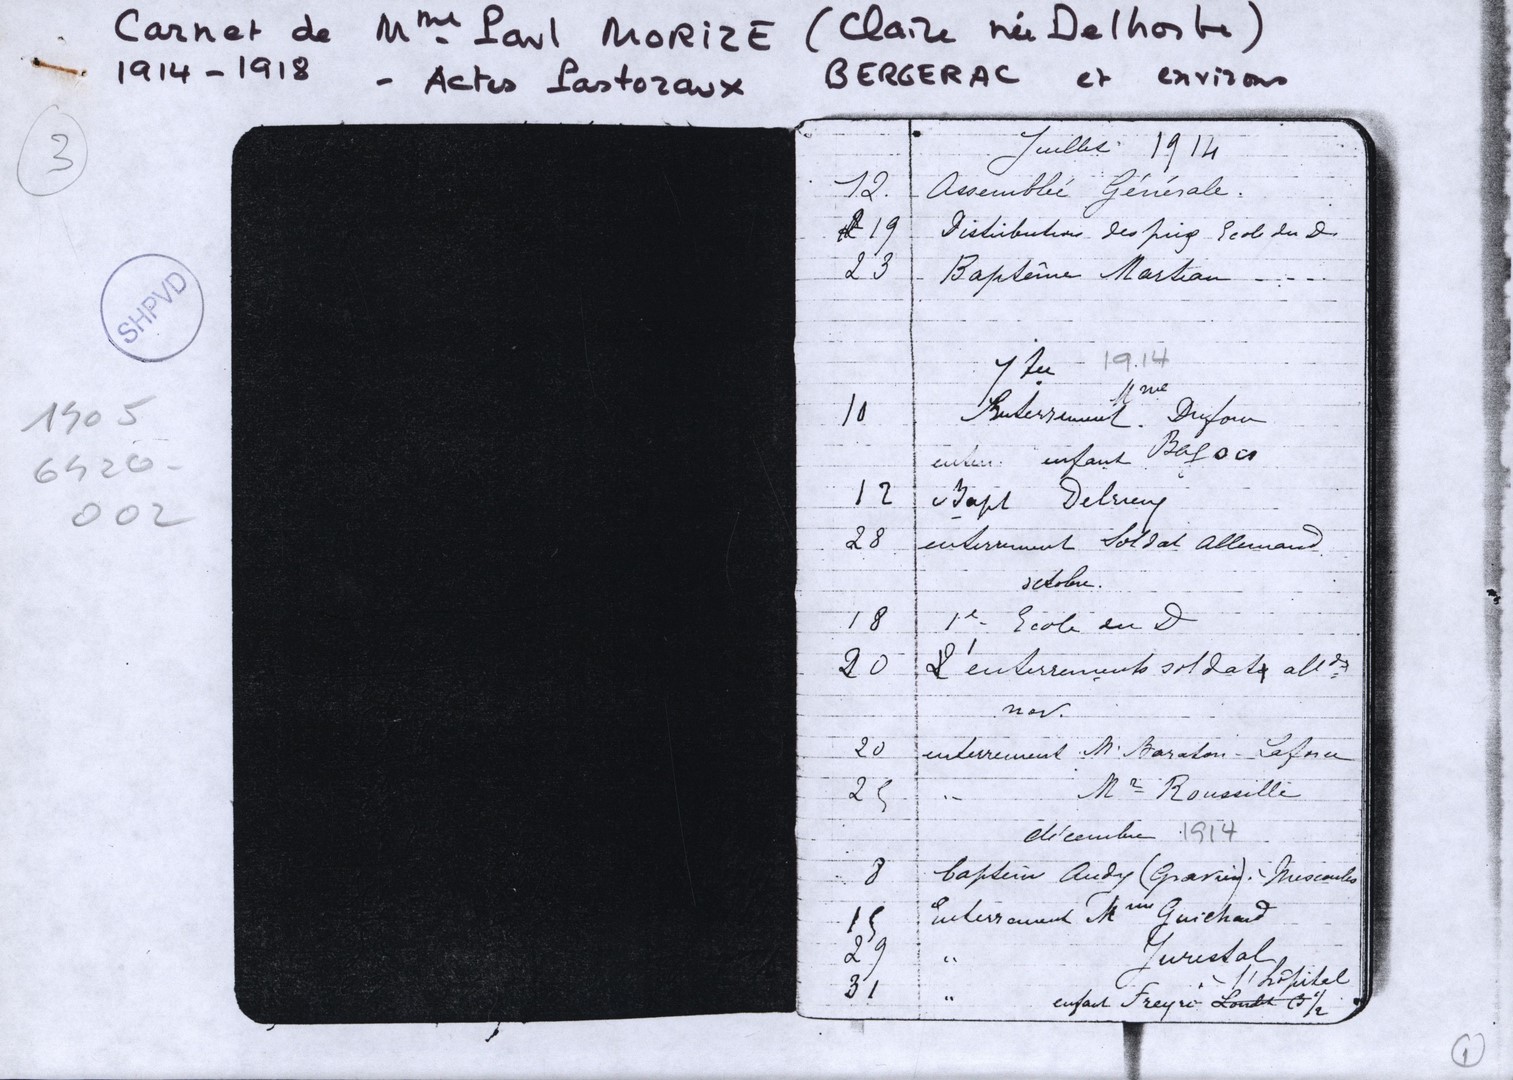 Carnet de Mme Paul MORIZE (Claire née Delhorbe)
1914-1918 - Actes Pastoraux BERGERAC et environs
3
SHPVD
1905
6420-
002
Juillet 1914
12. Assemblée Générale.
19 Distribution des prix Ecole du D
23 Baptême Marteau ----
7bre 1914
10 Enterrement Mme Dufour
enfant
12 Bapt
28 enterrement Soldat Allemand
octobre.
18 1e Ecole du D
20 enterrements soldats allds
nov.
20 enterrement M. Baraton - Laforce
25 " Mr Roussille
décembre 1914
8 baptême Audy
15 Enterrement Mme Guichard
29 " Jurestal
31 " enfant Freyri à l'hôpital
1